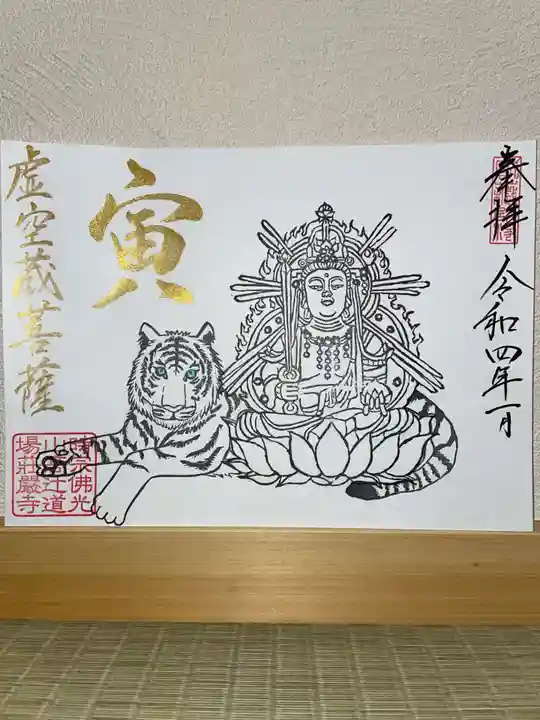 奉拝
令和四年一月
寅
虚空蔵菩薩
佛光
山辻道
場荘厳寺